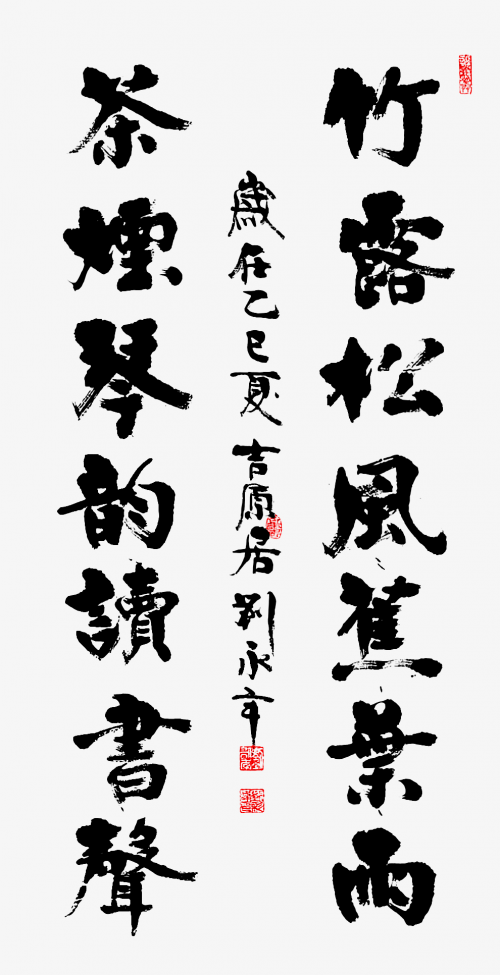 竹露松風蕉葉雨
茶煙琴韵讀書聲
歲在乙巳夏吉原居劉永年